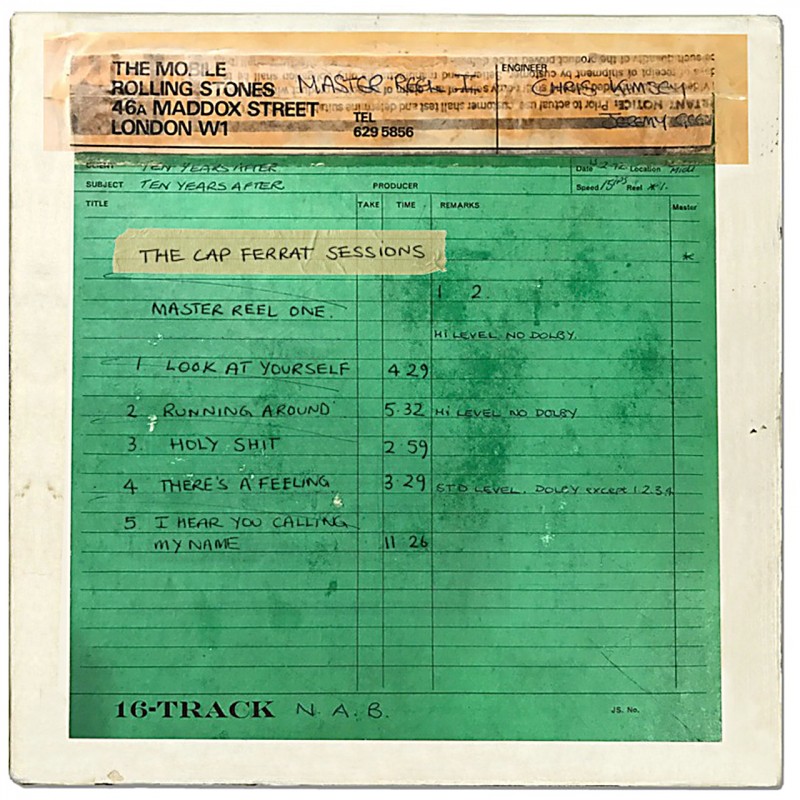 THE MOBILE
ROLLING STONES
46A MADDOX STREET
LONDON W1
MASTER REEL
TEL
629 5856
ENGINEER
CHRIS KIMSEY
JEREMY
TEN YEARS AFTER
Date Location
SUBJECT TEN YEARS AFTER PRODUCER
Speed 15 ips Reel #1.
TITLE TAKE TIME REMARKS Master
THE CAP FERRAT SESSIONS *
1 2
MASTER REEL ONE.
HI LEVEL NO DOLBY.
1 LOOK AT YOURSELF 4 29
2 RUNNING AROUND 5.32 HI LEVEL NO DOLBY
3. HOLY SHIT 2 59
4 THERE'S A FEELING 3.29 STD LEVEL, DOLBY EXCEPT 1.2.3.4
5 I HEAR YOU CALLING
MY NAME 11 26
16-TRACK N. A. B.
JS. No.